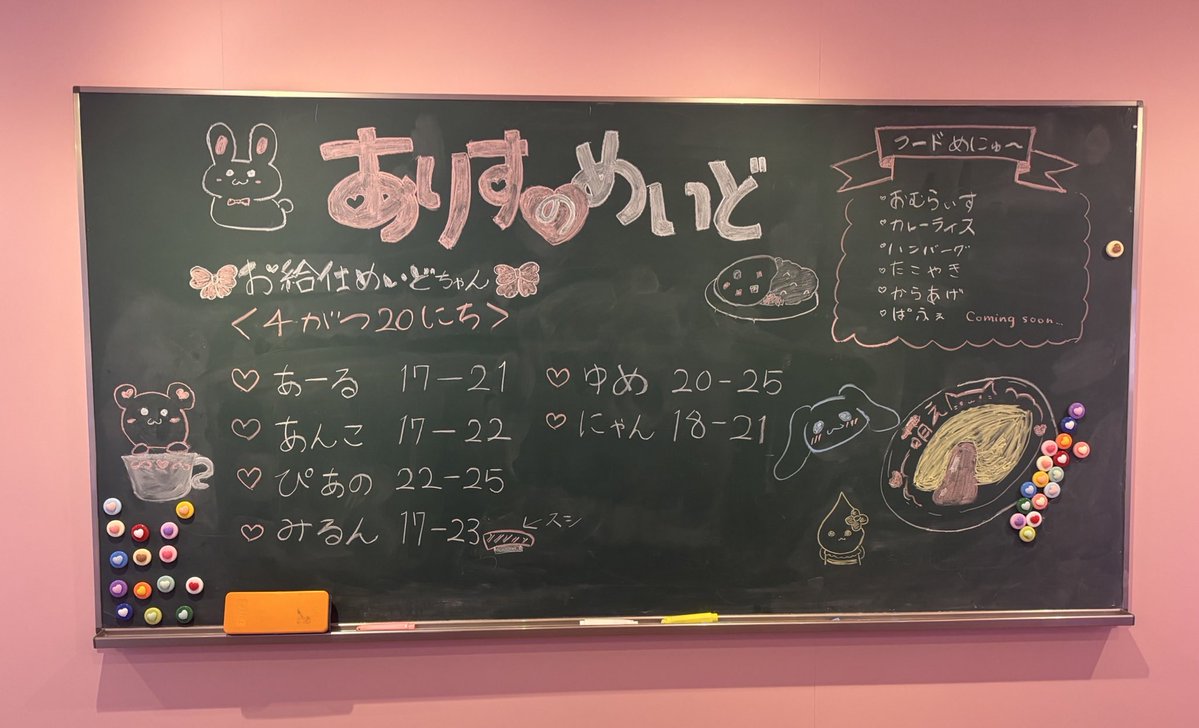 ありすのめいど
お給仕めいどちゃん
<4がつ20にち>
♡ あーる 17-21
♡ あんこ 17-22
♡ ぴあの 22-25
♡ みるん 17-23 ←スシ
♡ ゆめ 20-25
♡ にゃん 18-21
フードめにゅ〜
♡おむらいす
♡カレーライス
♡ハンバーグ
♡たこやき
♡からあげ
♡ぱふぇ Coming soon...
萌え